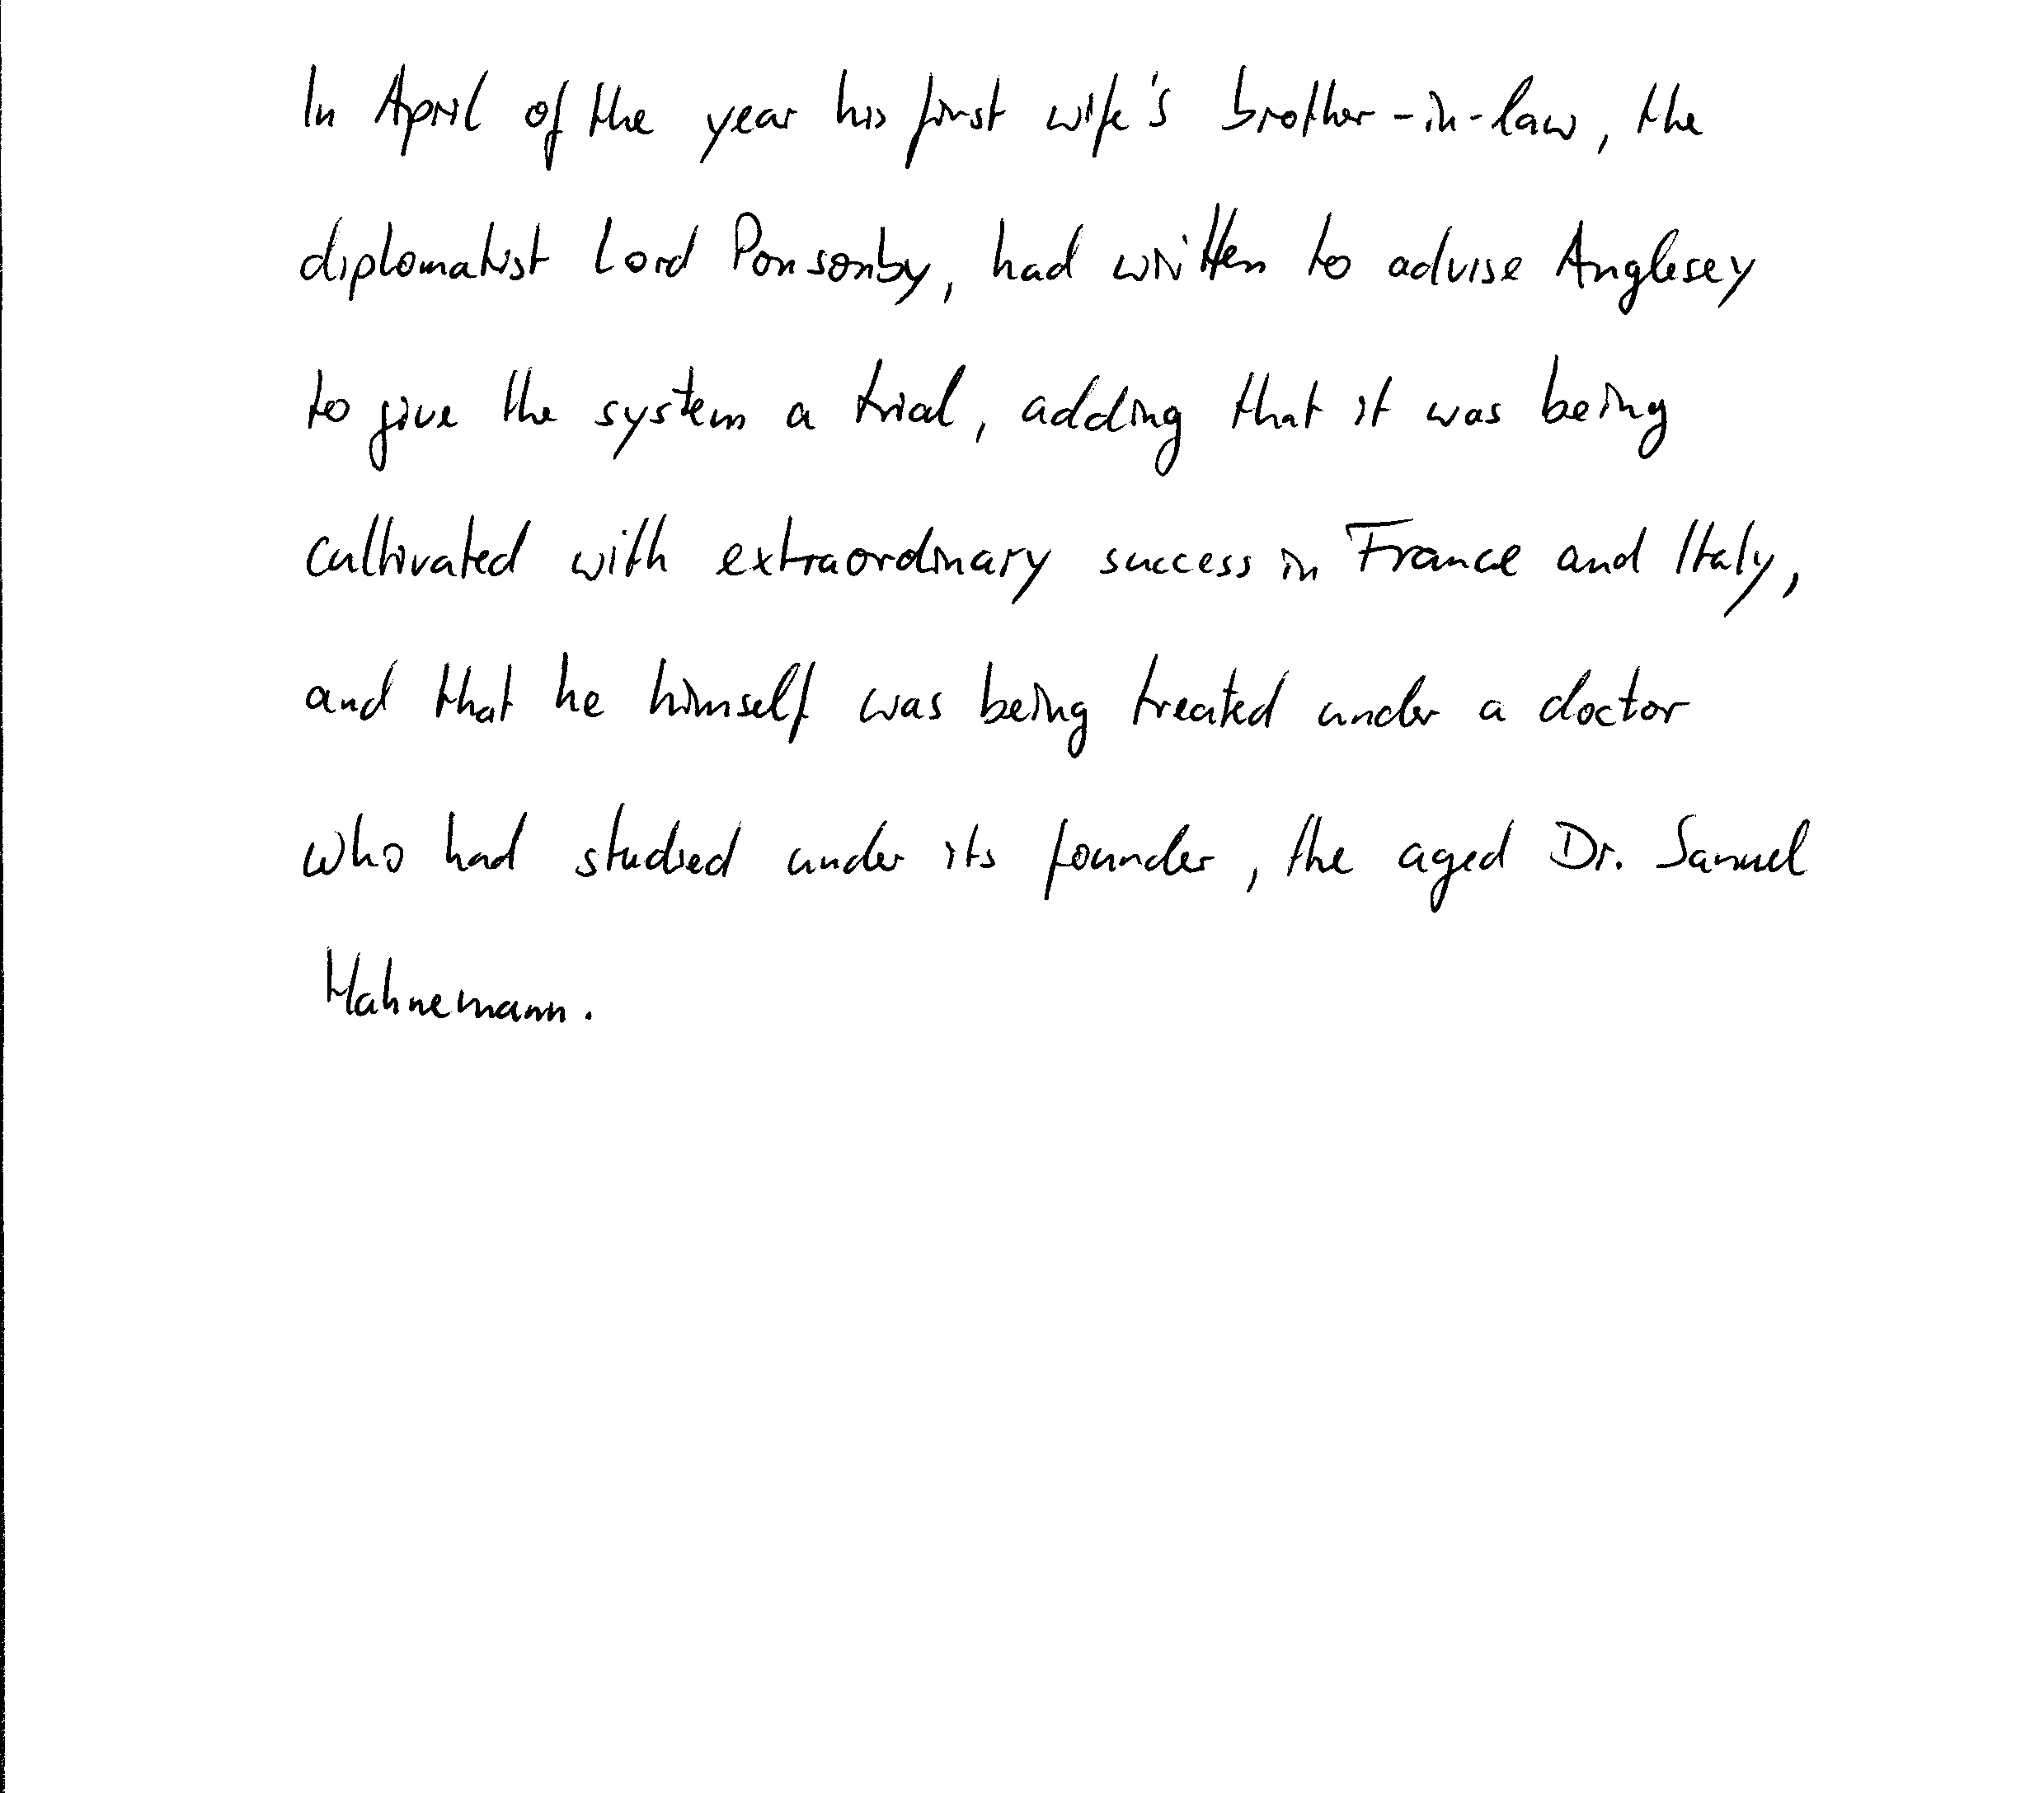 In April of the year his first wife's brother-in-law, the
diplomatist Lord Ponsonby, had written to advise Anglesey
to give the system a trial, adding that it was being
cultivated with extraordinary success in France and Italy,
and that he himself was being treated under a doctor
who had studied under its founder, the aged Dr. Samuel
Hahnemann.